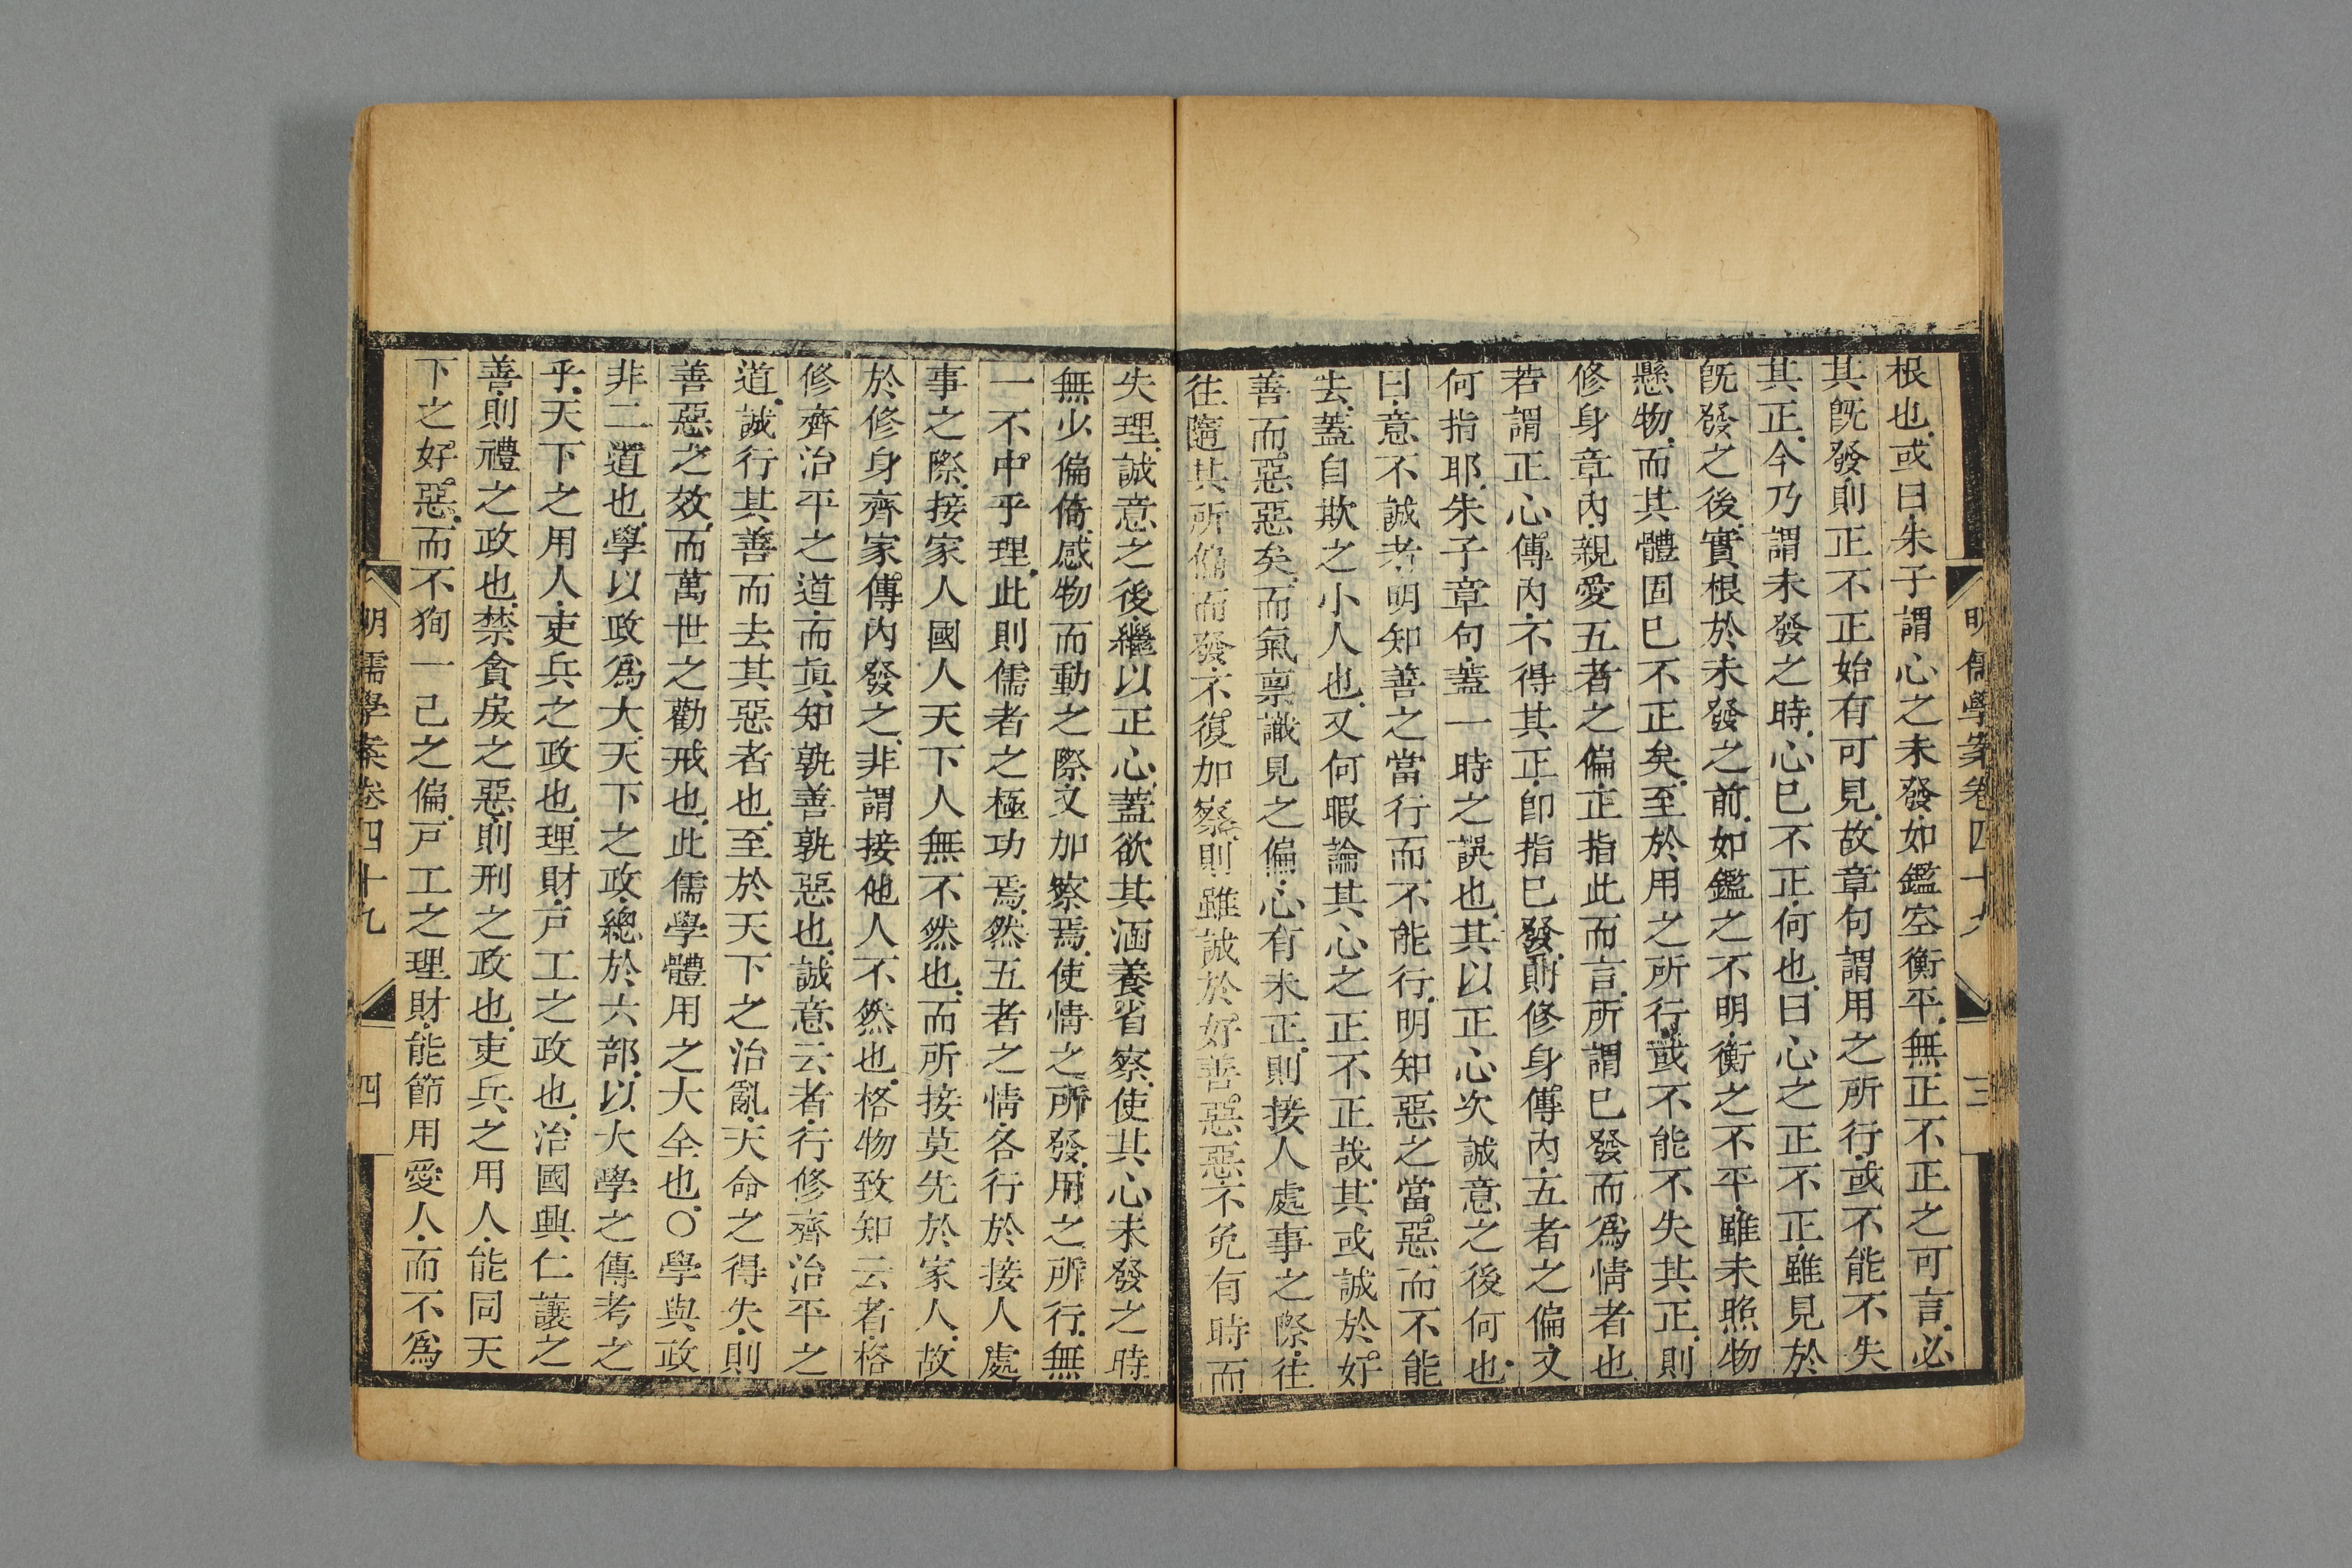 明儒學案卷四十九
三
根也或曰朱子謂心之未發如鑑空衡平無正不正之可言必
其旣發則正不正始有可見故章句謂用之所行或不能不失
其正今乃謂未發之時心已不正何也曰心之正不正雖見於
旣發之後實根於未發之前如鑑之不明衡之不平雖未照物
懸物而其體固已不正矣至於用之所行或不能不失其正則
修身章內親愛五者之偏正指此而言所謂已發而爲情者也
若謂正心傳內不得其正卽指已發則修身傳內五者之偏又
何指耶朱子章句蓋一時之誤也其以正心次誠意之後何也
曰意不誠者明知善之當行而不能行明知惡之當惡而不能
去蓋自欺之小人也又何暇論其心之正不正哉其或誠於好
善而惡惡矣而氣稟識見之偏心有未正則接人處事之際往
往隨其所偏而發不復加察則雖誠於好善惡惡不免有時而
失理誠意之後繼以正心蓋欲其涵養省察使其心未發之時
無少偏倚感物而動之際又加察焉使情之所發用之所行無
一不中乎理此則儒者之極功焉然五者之情各行於接人處
事之際接家人國人天下人無不然也而所接莫先於家人故
於修身齊家傳內發之非謂接他人不然也格物致知云者格
修齊治平之道而眞知孰善孰惡也誠意云者行修齊治平之
道誠行其善而去其惡者也至於天下之治亂天命之得失則
善惡之效而萬世之勸戒也此儒學體用之大全也○學與政
非二道也學以政爲大天下之政總於六部以大學之傳考之
乎天下之用人吏兵之政也理財戶工之政也治國興仁讓之
善則禮之政也禁貪戾之惡則刑之政也吏兵之用人能同天
下之好惡而不狥一己之偏戶工之理財能節用愛人而不爲
明儒學案卷四十九
四